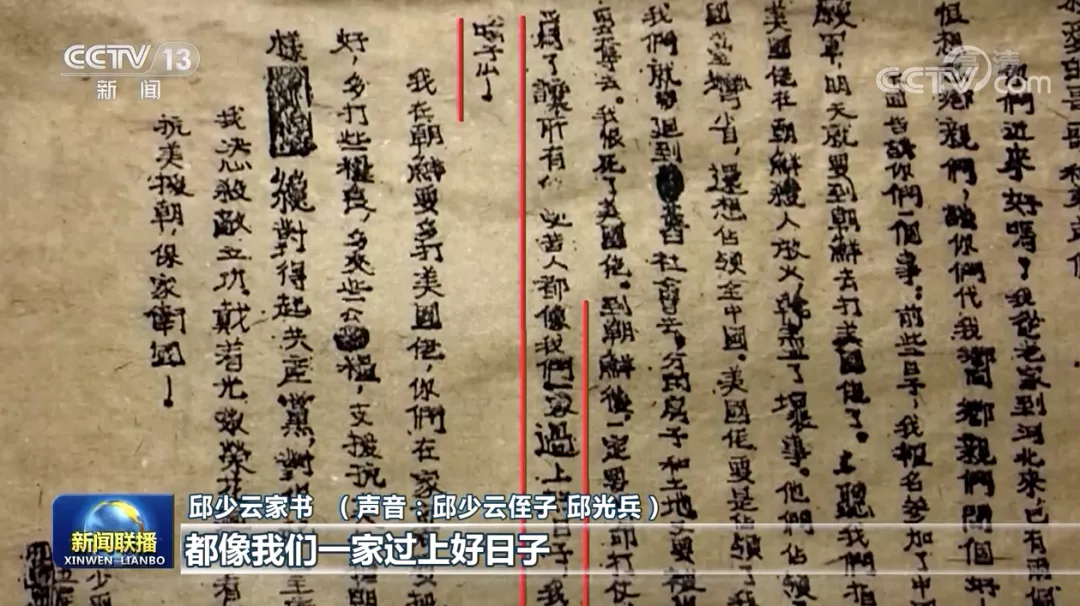 CCTV 13
新闻
CCTV.com
高清
愛的哥哥和弟弟們
們近來好嗎？我從老家到河北來，已有兩個
但想鄉親們，請你們代我問鄉親們問個好
面告訴你們一個事：前些日子，我報名參加了中
願軍，明天就要到朝鮮去打美國佬了。聽我們指
美國佬在朝鮮殺人放火，幹盡了壞事。他們佔領
國台灣省，還想佔領全中國。美國佬要是佔領了
我們就迴到舊社會去。分的房子和土地又要
要奪去。我恨死了美國佬。到朝鮮後，一定要打仗
爲了讓所有受苦人都像我們一家過上日子我
我在朝鮮要多打美國佬，你們在家
好，多打些糧食，多交些公糧，支援抗
樣絕對得起共產黨，對
我決心殺敵立功，戴着光榮花
抗美援朝，保家衛國！
邱少云家书 （声音：邱少云侄子 邱光兵）
新闻联播
XINWEN LIANBO
都像我们一家过上好日子